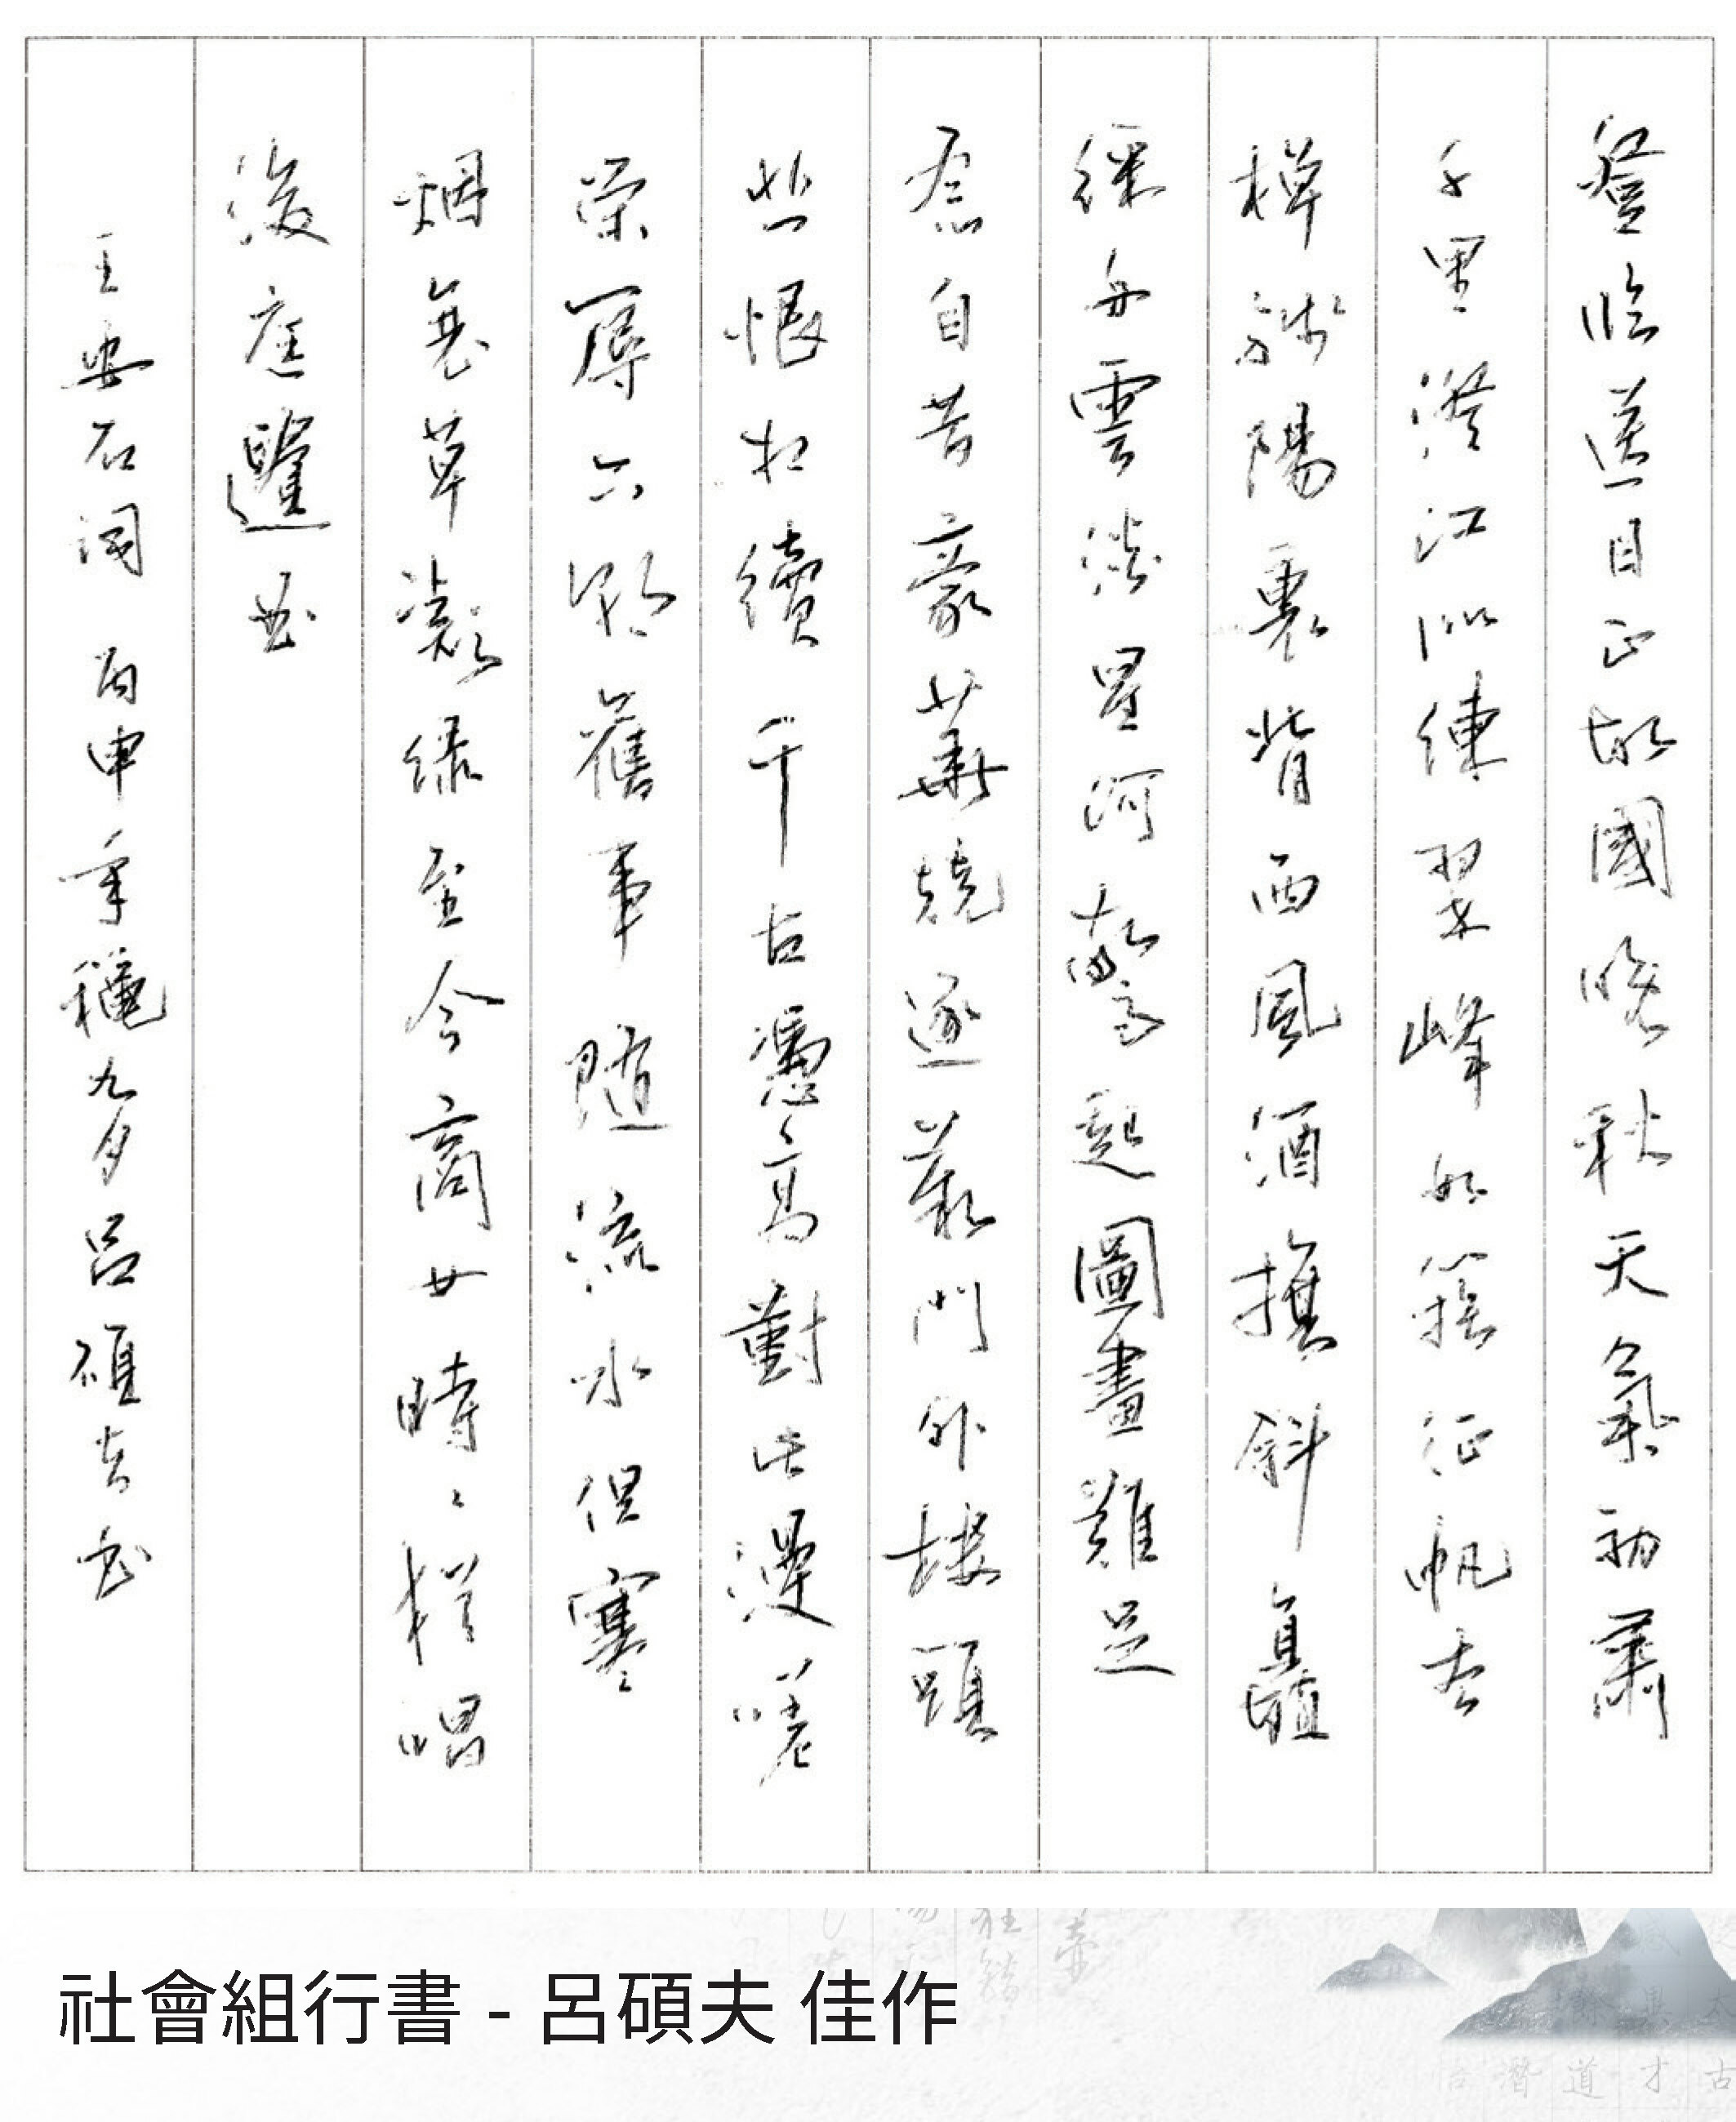 登臨送目正故國晚秋天氣初肅
千里澄江似練翠峰如簇征帆去
棹殘陽裏背西風酒旗斜矗
綵舟雲淡星河鷺起圖畫難足
念自昔豪華競逐歎門外樓頭
悲恨相續千古憑高對此漫嗟
榮辱六朝舊事隨流水但寒
烟衰草凝綠至今商女時〻猶唱
後庭遺曲
王安石詞 丙申年穐九月呂碩夫書
社會組行書 - 呂碩夫 佳作